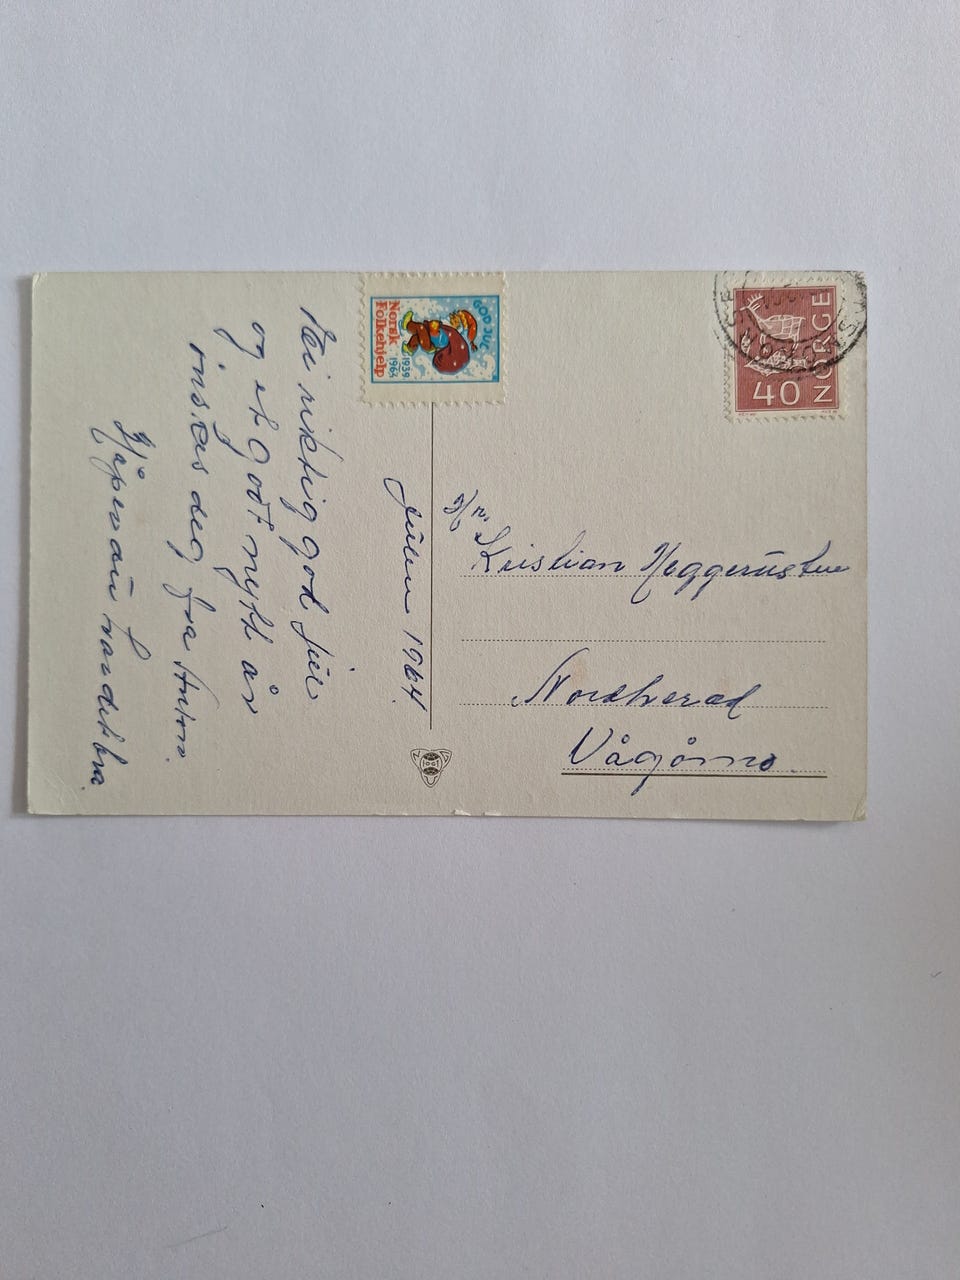 Julen 1964.
Hei riktig god jul
og et godt nytt år
ønskes deg fra Anton.
GOD JUL
Norsk
Folkehjelp
1939
1964
NORGE
40
Kristian Heggerustue
Nordherad
Vågåmo.